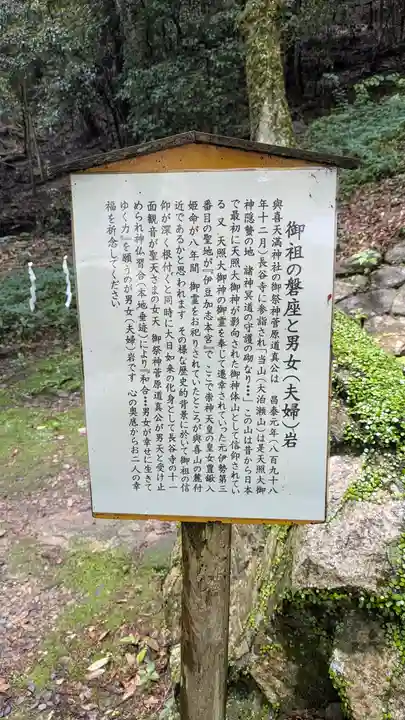 御祖の磐座と男女（夫婦）岩
與喜天満神社の御祭神菅原道真公は　昌泰元年（八百九十八
年十二月）長谷寺に参詣され「当山（大泊瀬山）は是天照大御
神隠蟄の地　諸神冥道の守護の砌なり・・・この山は昔から日本
で最初に天照大御神が影向された御神体山として信仰されてい
る　又　天照大御神の御霊を奉じて遷幸されていった元伊勢第三
番目の聖地が『伊豆加志本宮』で　ここで崇神天皇の皇女豊鍬入
姫命が八年間　御霊をお祀りされていたところが與喜山の麓付
近であるかと思われます　その様な歴史的背景に於いて御祖の信
仰が深く根付くと同時に大日如来の化身として長谷寺の十一
面観音が聖天さまの女天　御祭神菅原道真公が男天と受け止
められ神仏習合（本地垂迹）により『和合・・・男女が幸せに生きて
ゆく力』を願うのが男女（夫婦）岩です　心の奥底からお二人の幸
福を祈念してください